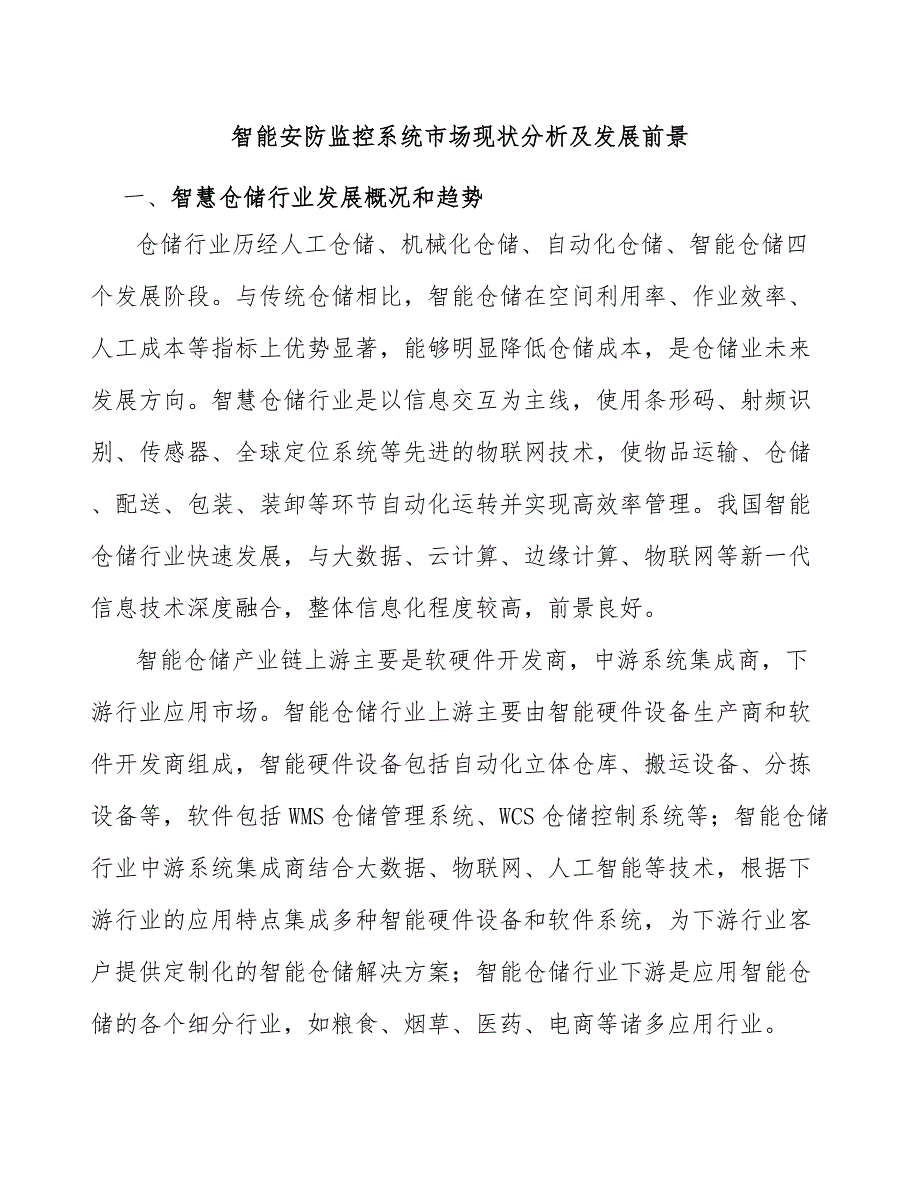 智能安防监控系统市场现状分析及发展前景
一、智慧仓储行业发展概况和趋势
仓储行业历经人工仓储、机械化仓储、自动化仓储、智能仓储四
个发展阶段。与传统仓储相比，智能仓储在空间利用率、作业效率、
人工成本等指标上优势显著，能够明显降低仓储成本，是仓储业未来
发展方向。智慧仓储行业是以信息交互为主线，使用条形码、射频识
别、传感器、全球定位系统等先进的物联网技术，使物品运输、仓储
、配送、包装、装卸等环节自动化运转并实现高效率管理。我国智能
仓储行业快速发展，与大数据、云计算、边缘计算、物联网等新一代
信息技术深度融合，整体信息化程度较高，前景良好。
智能仓储产业链上游主要是软硬件开发商，中游系统集成商，下
游行业应用市场。智能仓储行业上游主要由智能硬件设备生产商和软
件开发商组成，智能硬件设备包括自动化立体仓库、搬运设备、分拣
设备等，软件包括 WMS 仓储管理系统、WCS 仓储控制系统等；智能仓储
行业中游系统集成商结合大数据、物联网、人工智能等技术，根据下
游行业的应用特点集成多种智能硬件设备和软件系统，为下游行业客
户提供定制化的智能仓储解决方案；智能仓储行业下游是应用智能仓
储的各个细分行业，如粮食、烟草、医药、电商等诸多应用行业。